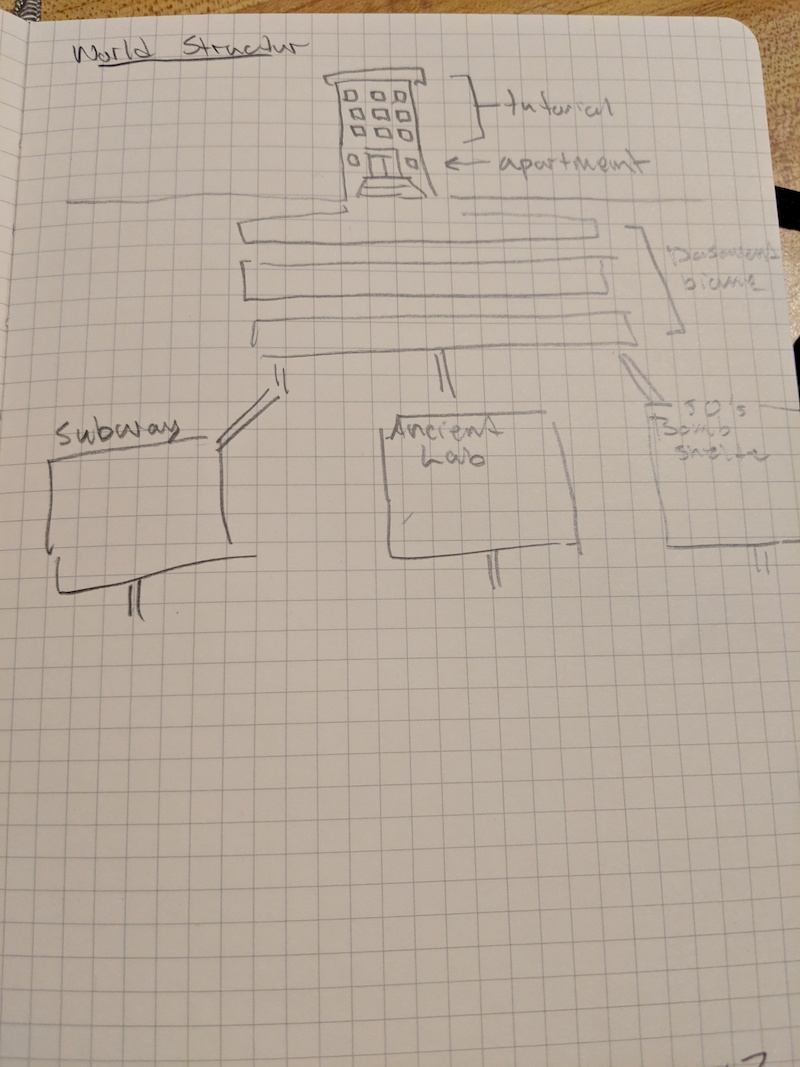 World Structur
tutorial
apartment
Basement
biome
Subway
Ancient
Lab
50's
Bomb
Shelte